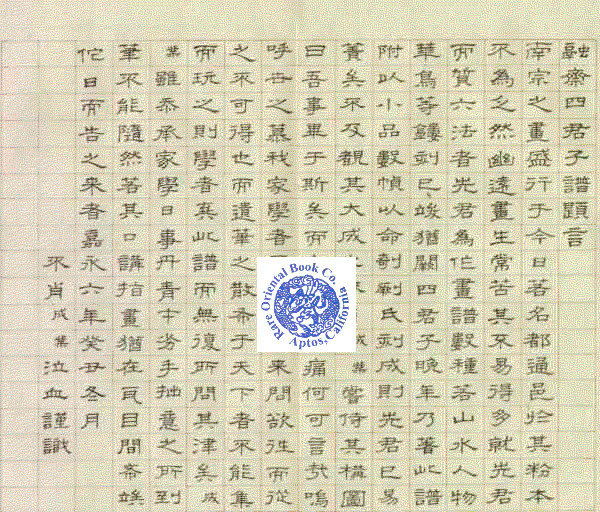 融齋四君子譜題言
南宗之畫盛行于今日若名都通邑於其粉本
不為乏然幽遠畫生常苦其不易得多就先君
而質六法者先君為作畫譜數種若山水人物
華鳥等鏤剞已竣猶闕四君子晚年乃著此譜
附以小品數幀以命剞劂氏剞成則先君已易
簀矣不及覩其大成 業嘗侍其構圖
曰吾事畢于斯矣而 痛何可言哉嗚
呼世之慕我家學者 來問欲往而從
之不可得也而遺華之散布于天下者不能集
而玩之則學者棄此譜而無復所問其津矣成
業雖忝承家學日事丹青才劣手拙意之所到
筆不能隨然若其口講指畫猶在耳目間希竢
佗日而告之來者嘉永六年癸丑冬月
不肖成業泣血謹識
Rare Oriental Book Co.
Aptos, California